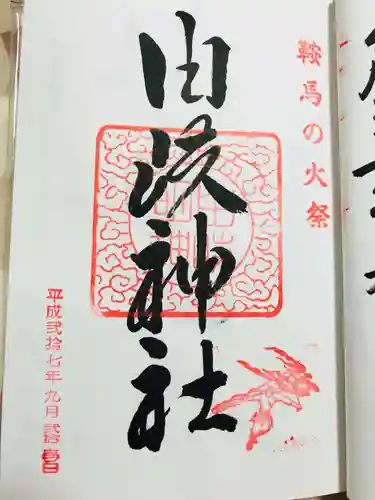 鞍馬の火祭
由岐神社
平成弐拾七年九月弐拾